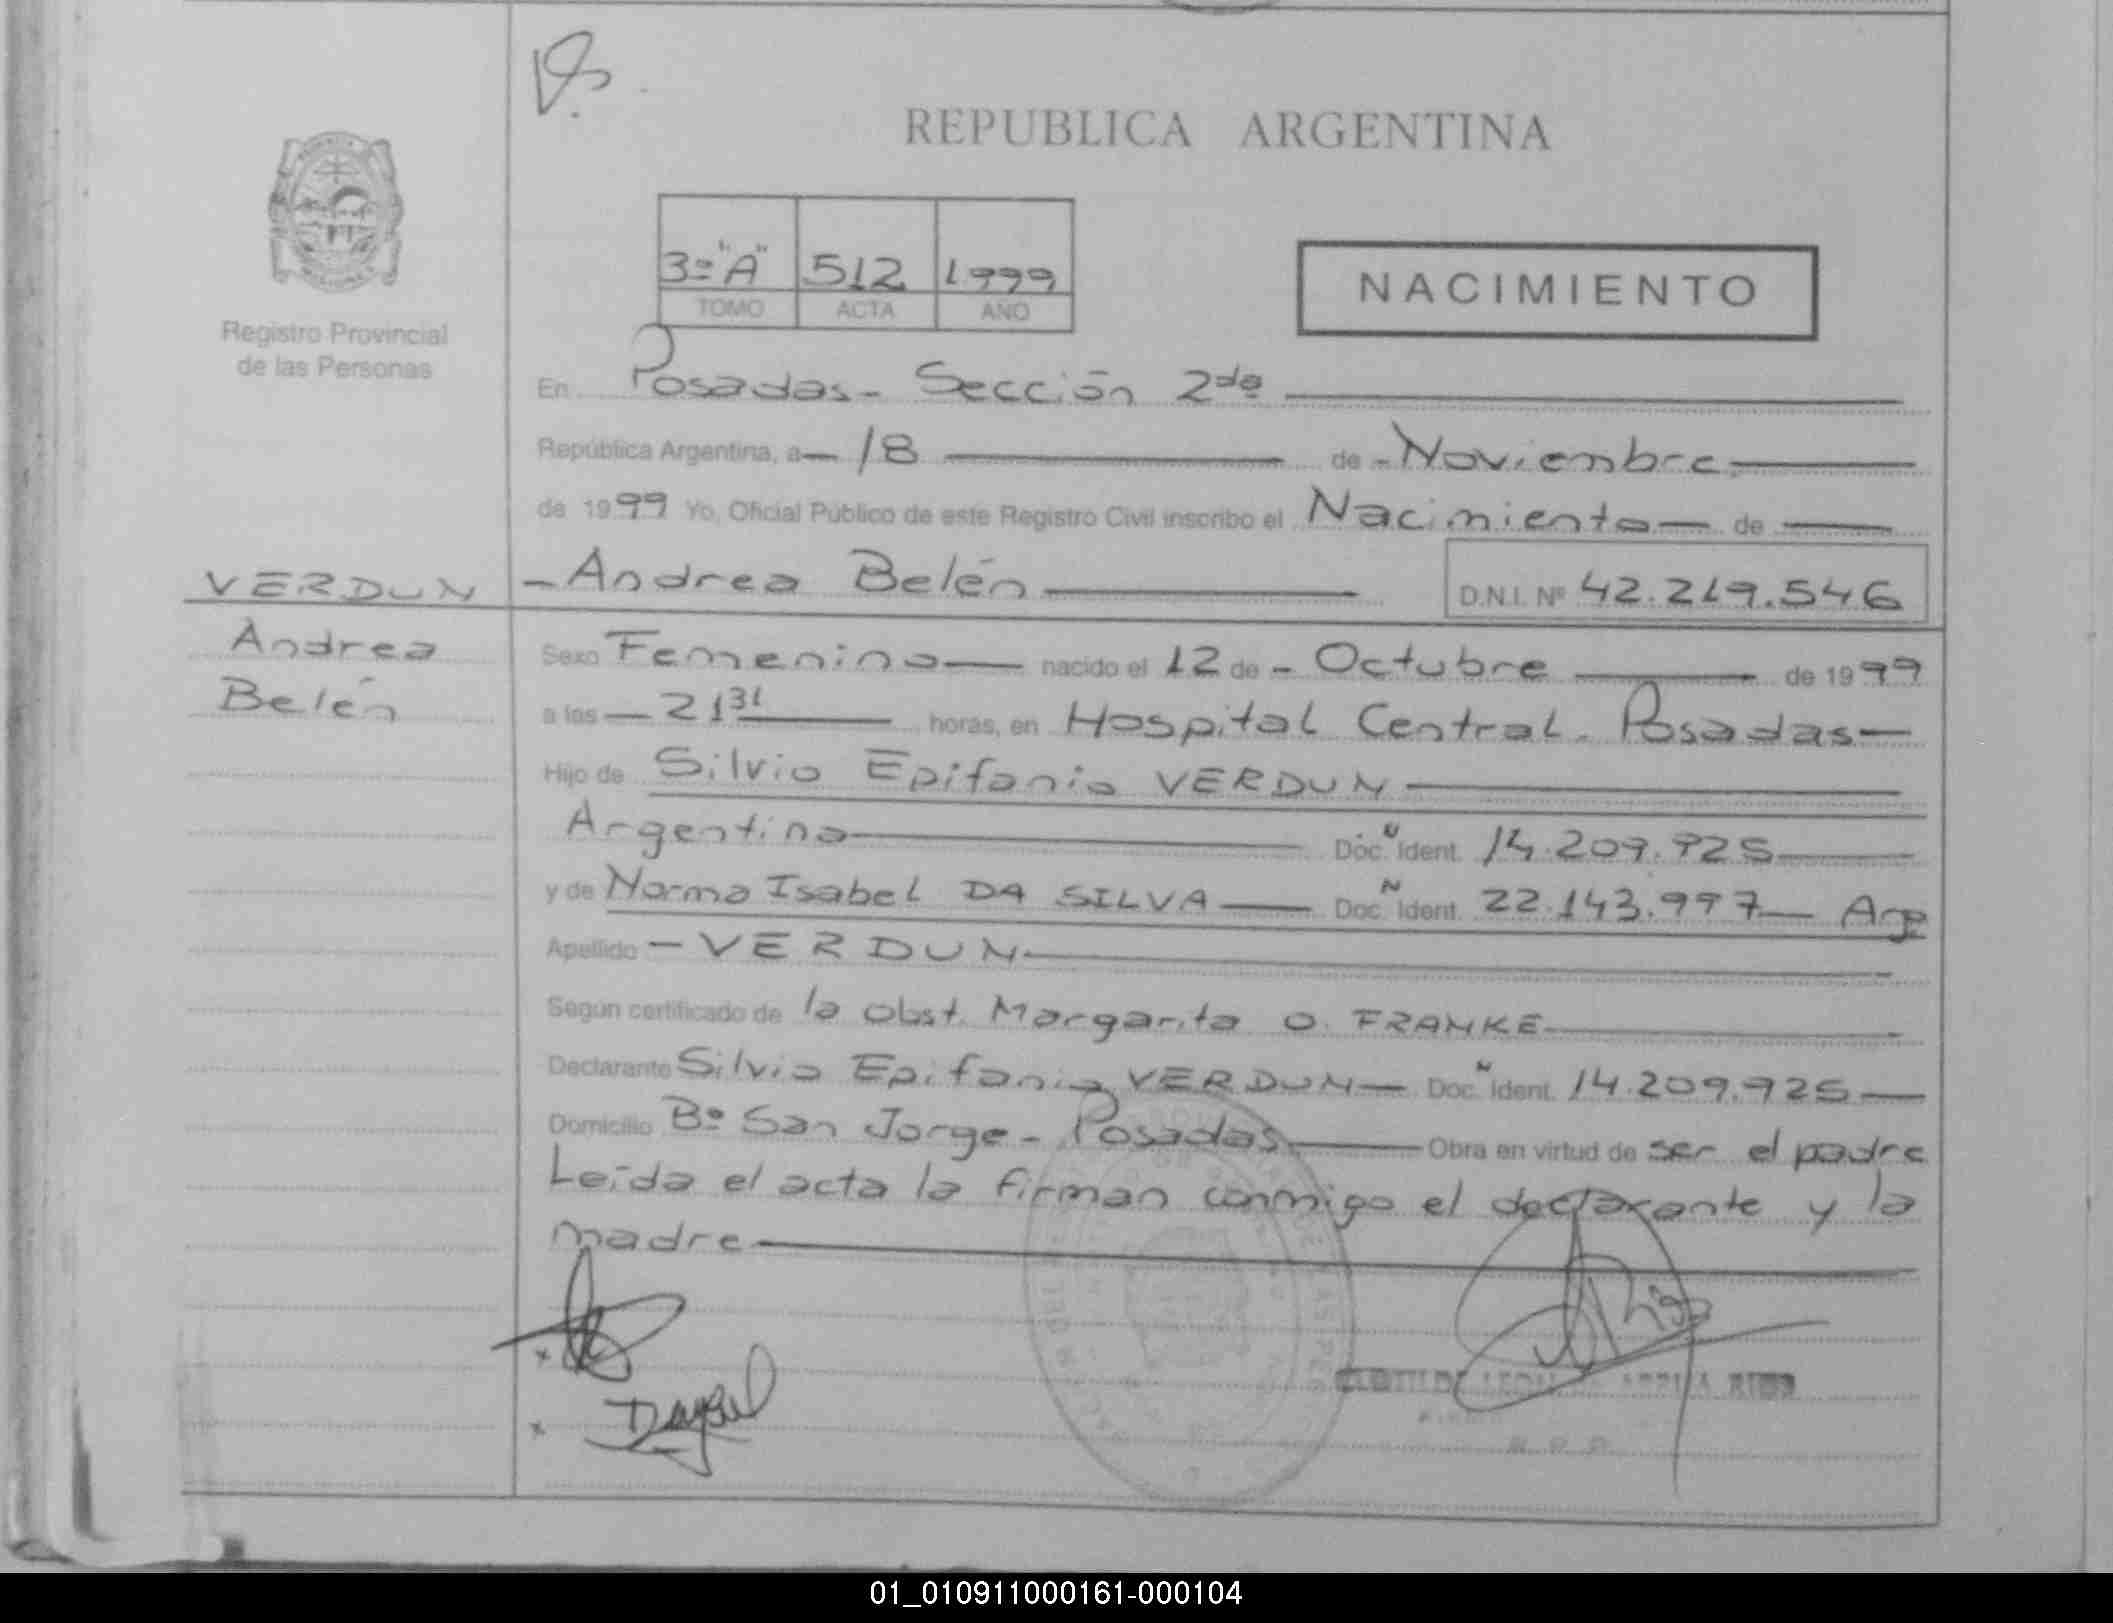 REPUBLICA ARGENTINA
3º "A" 512 1999
TOMO ACTA AÑO
NACIMIENTO
Registro Provincial
de las Personas
En Posadas - Sección 2da
República Argentina, a 18 de Noviembre
de 1999 Yo, Oficial Público de este Registro Civil inscribo el Nacimiento de
VERDUN
Andrea
Belén
Andrea Belén D.N.I. Nº 42.219.546
Sexo Femenino nacido el 12 de Octubre de 1999
a las 21 31 horas, en Hospital Central. Posadas
Hijo de Silvio Epifanio VERDUN
Argentino Doc. N Ident. 14.209.925
y de Norma Isabel DA SILVA Doc. N Ident. 22.143.997 Arg
Apellido VERDUN
Según certificado de la obst. Margarita O. FRANKE
Declarante Silvio Epifanio VERDUN Doc. N Ident. 14.209.925
Domicilio Bº San Jorge - Posadas Obra en virtud de ser el padre
Leída el acta la firman conmigo el declarante y la
madre
01_010911000161-000104